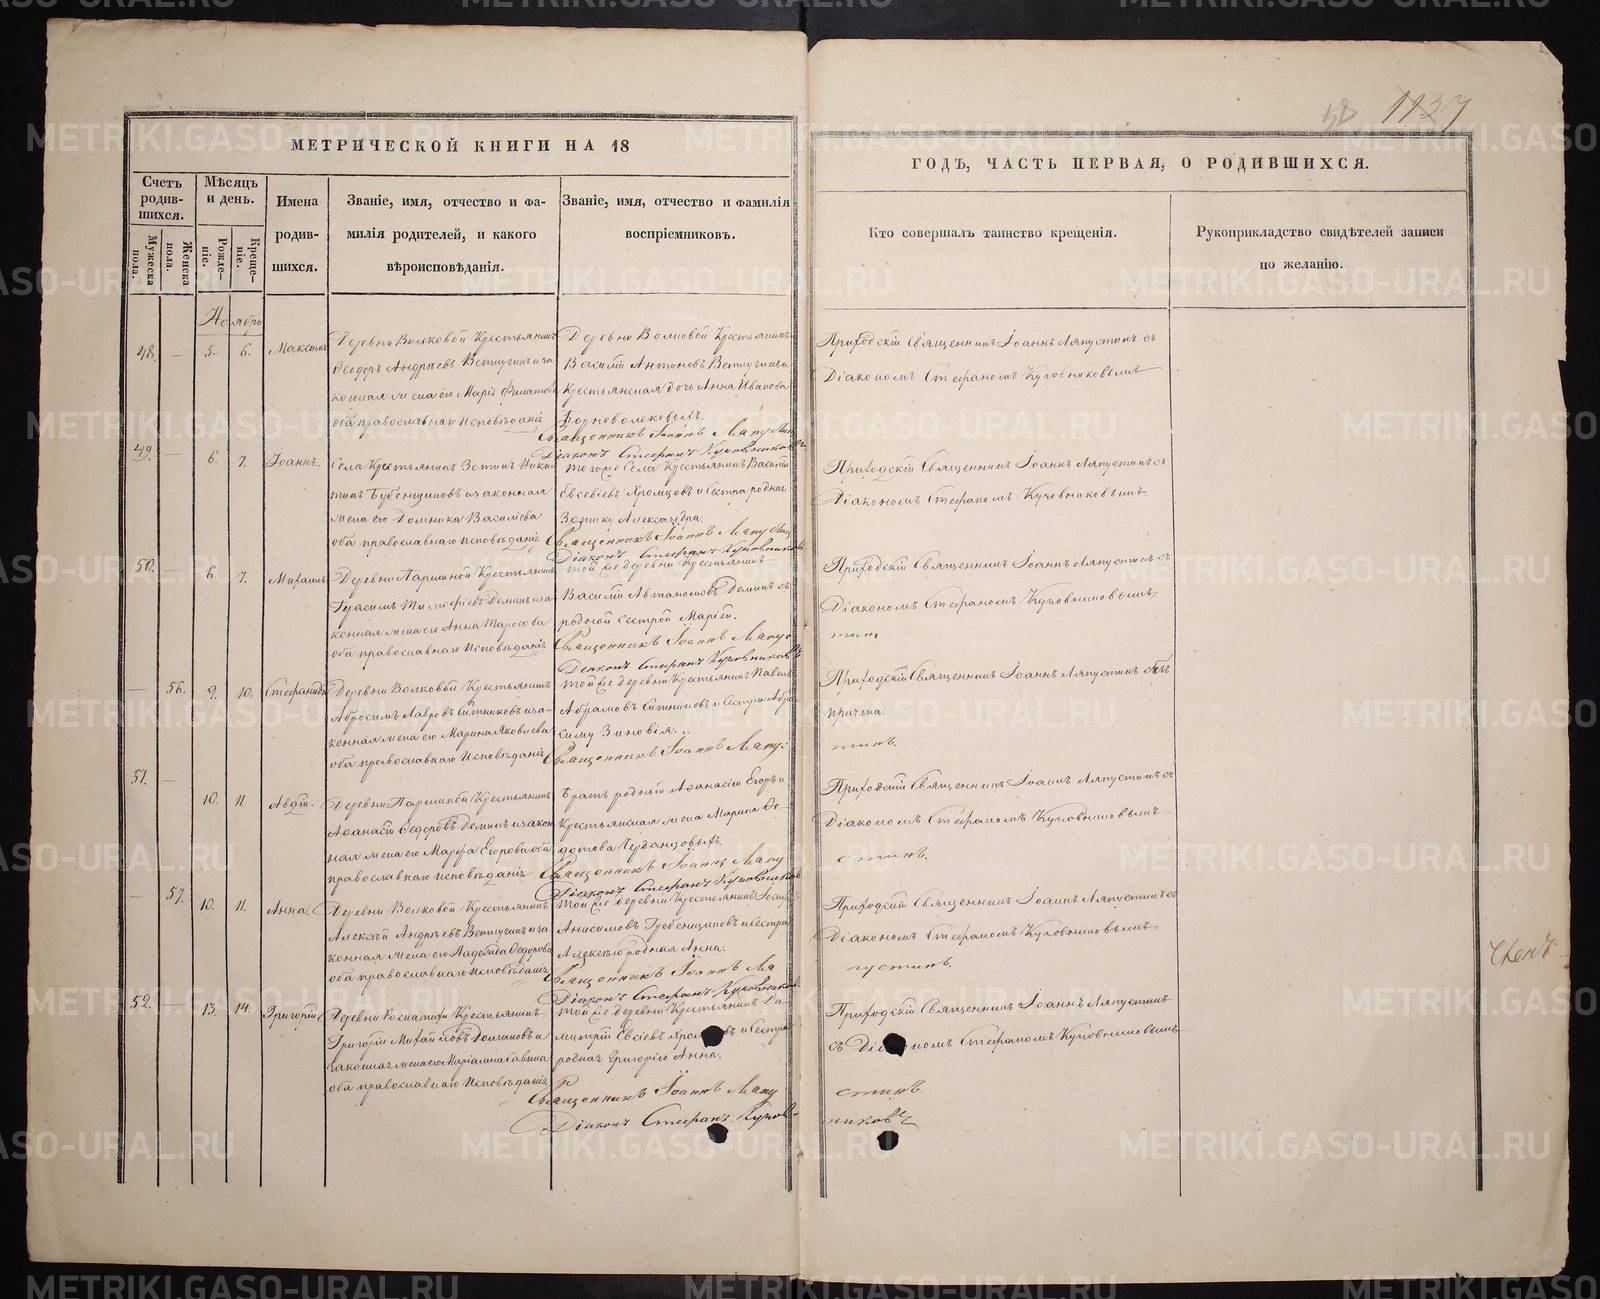 1137
МЕТРИЧЕСКОЙ КНИГИ НА 18
ГОДЪ, ЧАСТЬ ПЕРВАЯ, О РОДИВШИХСЯ.
Счетъ родив-шихся.
Мужеска пола.
Женска пола.
Мѣсяцъ и день.
Рожде-ніе.
Креще-ніе.
Имена
родив-
шихся.
Званіе, имя, отчество и фа-
милія родителей, и какого
вѣроисповѣданія.
Званіе, имя, отчество и фамилія
воспріемниковъ.
Кто совершалъ таинство крещенія.
Рукоприкладство свидѣтелей записи
по желанію.
Ноябрь
48. — 5. 6. Максимъ
Деревни Волковой Крестьянинъ
Ѳеодоръ Андреевъ Ветлугинъ и за
конная жена его Марія Филатова
оба православнаго исповѣданія
Деревни Волковой Крестьянинъ
Василій Антоновъ Ветлугинъ и
Крестьянская дочь Анна Иванова
Священникъ Іоаннъ Лапустинъ
Діаконъ Стефанъ
Приходскій Священникъ Іоаннъ Лапустинъ съ
Діакономъ Стефаномъ
49. — 6. 7. Іоаннъ.
Села Крестьянинъ Зотикъ Ники-
тинъ и законная
жена его Домника Василіева
оба православнаго исповѣданія
того же Села Крестьянинъ Василій
Евсевіевъ Хромцовъ и Сестра родная
Зотику Александра.
Священникъ Іоаннъ Лапустин
Діаконъ Стефанъ
Приходскій Священникъ Іоаннъ Лапустинъ съ
Діакономъ Стефаномъ
50. — 6. 7. Михаилъ
Деревни Паршиной Крестьянинъ
Герасимъ Тимофеевъ Деминъ и за
конная жена его Анна Тарасова
оба православнаго исповѣданія
той же деревни Крестьянинъ
Василій Автаномовъ Деминъ съ
родной сестрой Маріей.
Священникъ Іоаннъ Лапус
Діаконъ Стефанъ
Приходскій Священникъ Іоаннъ Лапустинъ съ
Діакономъ Стефаномъ
тинъ
— 56. 9. 10. Стефанида
Деревни Волковой Крестьянинъ
Абросимъ Лавровъ Ситниковъ и за-
конная жена его Марина Яковлева
оба православнаго исповѣданія
той же деревни Крестьянинъ Павелъ
Абрамовъ Ситниковъ и Сестра Абро
симу Зиновія.
Священникъ Іоаннъ Лапу-
Приходскій Священникъ Іоаннъ Лапустинъ безъ
причта.
тинъ.
51. — 10. 11. Авдій.
Деревни Паршиной Крестьянинъ
Аѳанасій Ѳедоровъ Деминъ и закон
ная жена его Марфа Егорова оба
православнаго исповѣданія
Братъ родный Аѳанасію Егоръ и
Крестьянская жена Марина Ѳе-
дотова
Священникъ Іоаннъ Лапу
Діаконъ Стефанъ
Приходскій Священникъ Іоаннъ Лапустинъ съ
Діакономъ Стефаномъ
стинъ.
— 57. 10. 11. Анна.
Деревни Волковой Крестьянинъ
Алексѣй Андреевъ Ветлугинъ и за
конная жена его Надежда Ѳедорова
оба православнаго исповѣданія
той же деревни Крестьянинъ
Анисимовъ Гребенщиковъ и сестра
Алексѣю родная Анна.
Священникъ Іоаннъ Ла
Діаконъ Стефанъ
Приходскій Священникъ Іоаннъ Лапустинъ съ
Діакономъ Стефаномъ
пустинъ.
52. — 13. 14. Григорій
Деревни Крестьянинъ
Григорій Михайловъ Долгановъ и
законная жена его Марія
оба православнаго исповѣданія
той же деревни Крестьянинъ Ди-
митрій Евсіевъ и Сестра
родная Григорію Анна.
Священникъ Іоаннъ Лапу
Діаконъ Стефанъ
Приходскій Священникъ Іоаннъ Лапустинъ
съ Діакономъ Стефаномъ
стинъ
никовъ
METRIKI.GASO-URAL.RU